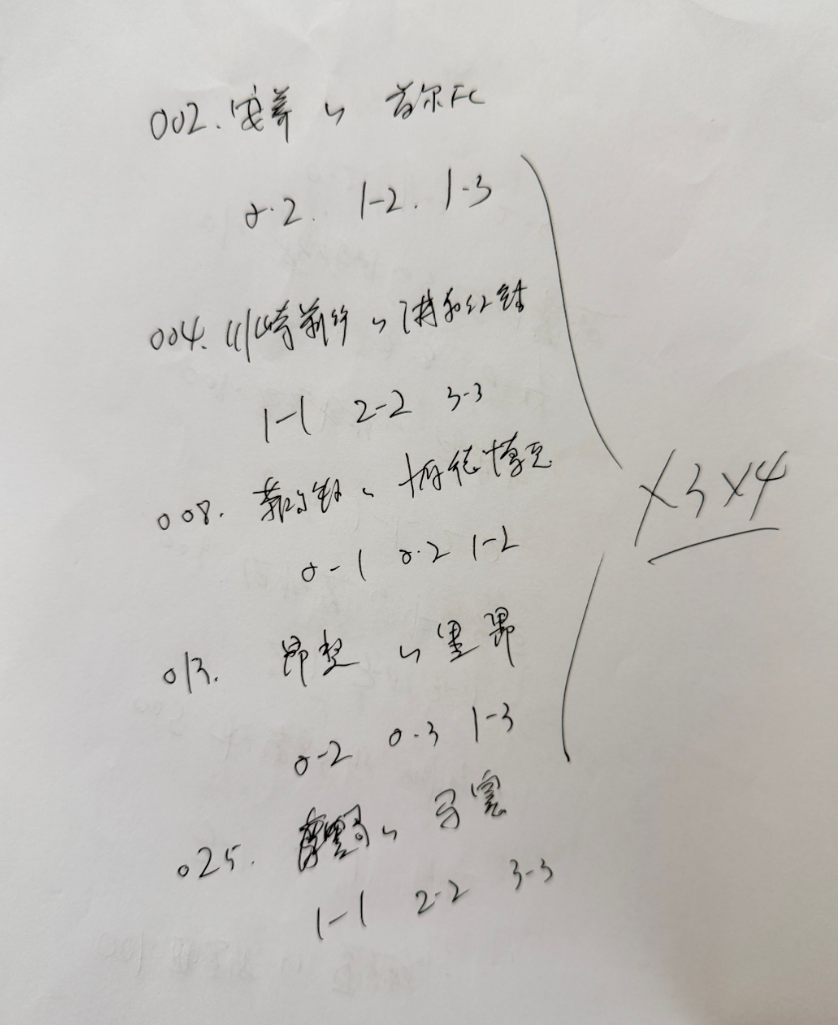 002. 安养 vs 首尔FC
0-2. 1-2. 1-3
004. 川崎前锋 vs 浦和红钻
1-1 2-2 3-3
008. 菲尔 vs 帕德博恩
0-1 0-2 1-2
013. 昂热 vs 里昂
0-2 0-3 1-3
025. vs 马竞
1-1 2-2 3-3
X3X4